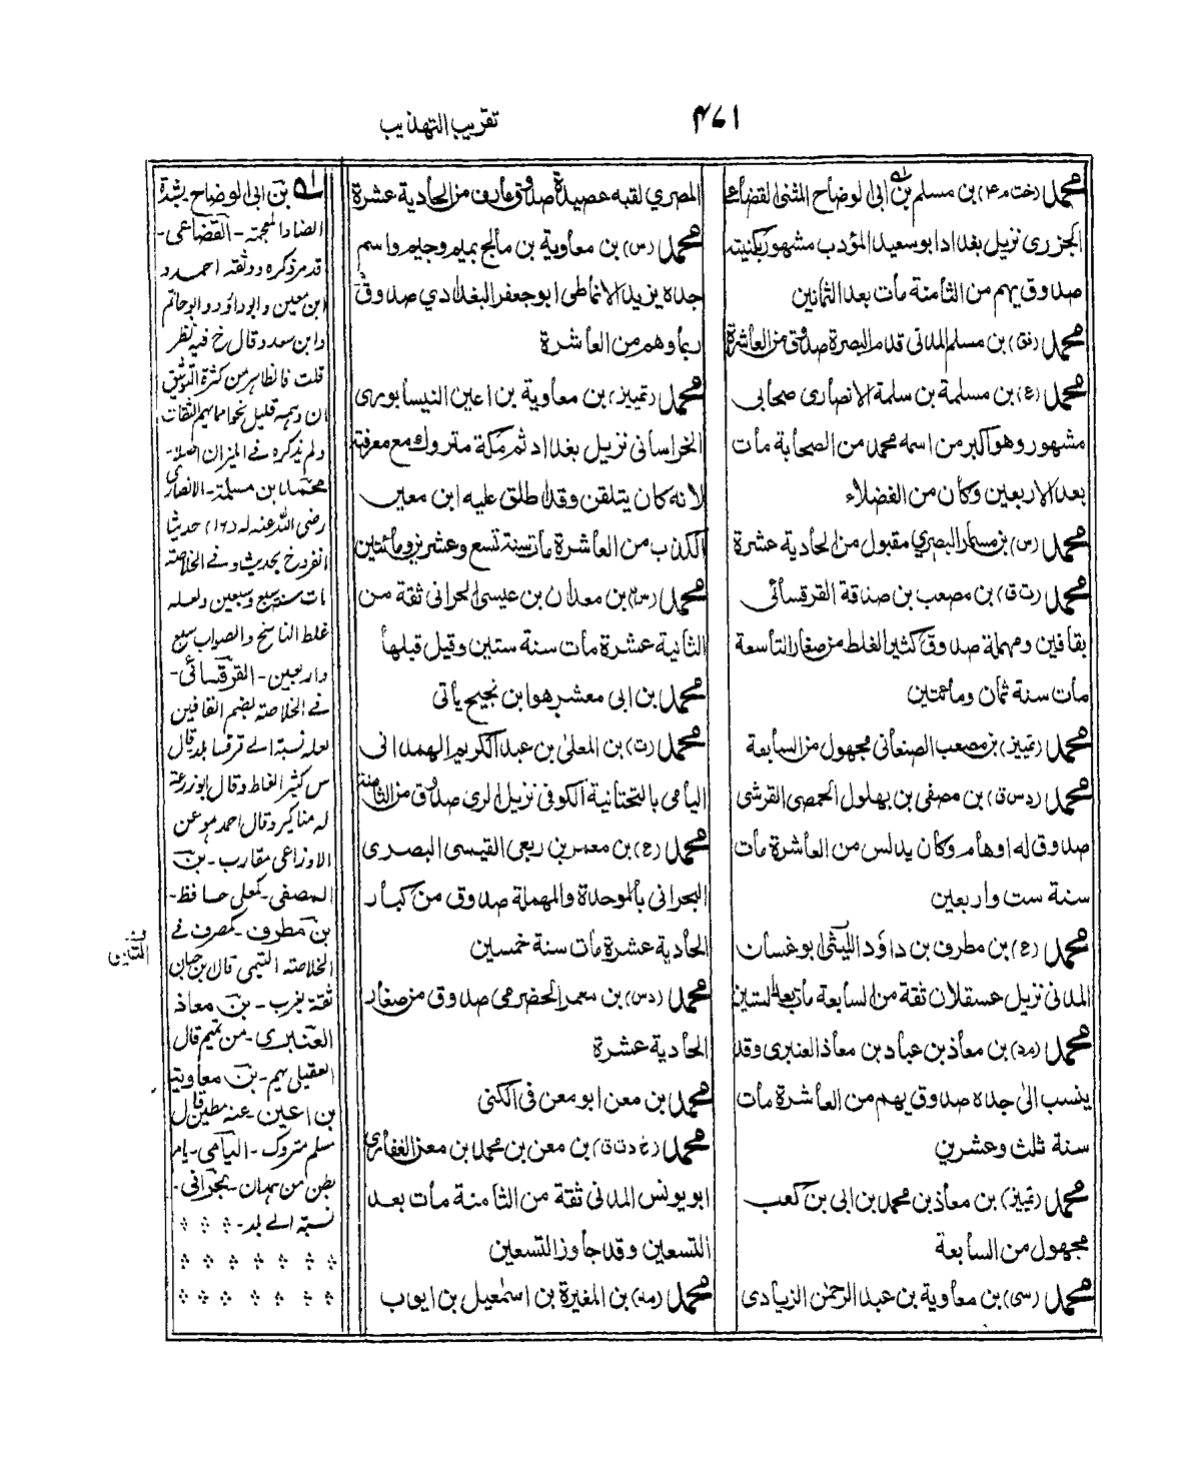 ۴۷۱
تقريب التهذيب
محمد (خت م ۴) بن مسلم بن ابى الوضاح المثنى القضاعى
الجزرى نزيل بغداد ابو سعيد المؤدب مشهور بكنيته
صدوق يهم من الثامنة مات بعد الثمانين
محمد (فق) بن مسلم المدنى قدم البصرة صدوق من العاشرة
محمد (ع) بن مسلمة بن سلمة الانصارى صحابى
مشهور وهو اكبر من اسمه محمد من الصحابة مات
بعد الاربعين وكان من الفضلاء
محمد (س) بن مسلم البصري مقبول من الحادية عشرة
محمد (ت ق) بن مصعب بن صدقة القرقسائى
بقافين ومهملة صدوق كثير الغلط من صغار التاسعة
مات سنة ثمان ومائتين
محمد (تمييز) بن مصعب الصنعانى مجهول من السابعة
محمد (د س ق) بن مصفى بن بهلول الحمصى القرشى
صدوق له اوهام وكان يدلس من العاشرة مات
سنة ست واربعين
محمد (ع) بن مطرف بن داؤد الليثى ابو غسان
المدنى نزيل عسقلان ثقة من السابعة مات بعد الستين
محمد (مد) بن معاذ بن عباد بن معاذ العنبرى وقد
ينسب الى جده صدوق يهم من العاشرة مات
سنة ثلث وعشرين
محمد (تمييز) بن معاذ بن محمد بن ابى بن كعب
مجهول من السابعة
محمد (سى) بن معاوية بن عبد الرحمن الزيادى
المصري لقبه عصيدة صدوق عارف من الحادية عشرة
محمد (س) بن معاوية بن مالج بميم وجيم واسم
جده يزيد الانماطى ابو جعفر البغدادي صدوق
ربما وهم من العاشرة
محمد (تمييز) بن معاوية بن اعين النيسابورى
الخراسانى نزيل بغداد ثم مكة متروك مع معرفته
لانه كان يتلقن وقد اطلق عليه ابن معين
الكذب من العاشرة مات سنة تسع وعشرين ومائتين
محمد (س) بن معدان بن عيسى الحرانى ثقة من
الثانية عشرة مات سنة ستين وقيل قبلها
محمد بن ابى معشر هو ابن نجيح يأتى
محمد (ت) بن المعلى بن عبد الكريم الهمدانى
اليامى بالتحتانية الكوفى نزيل الرى صدوق من الثامنة
محمد (ع) بن معمر بن ربعى القيسى البصرى
البحرانى بالموحدة والمهملة صدوق من كبار
الحادية عشرة مات سنة خمسين
محمد (دس) بن معمر الحضرمى صدوق من صغار
الحادية عشرة
محمد بن معن ابو معن فى الكنى
محمد (خ د ت ق) بن معن بن محمد بن معن الغفارى
ابو يونس المدنى ثقة من الثامنة مات بعد
التسعين وقد جاوز التسعين
محمد (مد) بن المغيرة بن اسمعيل بن ايوب
بن ابى الوضاح بشدة
الضاد المعجمة - القضاعى -
قد مر ذكره ووثقه احمد و
ابن معين وابو داؤد وابو حاتم
وابن سعد وقال خ فيه نظر
قلت فالظاهر من كثرة التوثيق
ان وهمه قليل نحوا مما يهم الثقات
ولم يذكره فى الميزان اصلا -
محمد بن مسلمة - الانصارى
رضى الله عنه له (۱٦) حديثا
انفرد خ بحديث و فى الخلاصة
مات سنة سبع وسبعين ولعله
غلط الناسخ والصواب سبع
واربعين - القرقسائى -
فى الخلاصة بضم القافين
لعله نسبة الى قرقسا بلد قال
س كثير الغلط وقال ابو زرعة
له مناكير وقال احمد هو عن
الاوزاعى مقارب - بن
المصفى - كمعلى حافظ -
بن مطرف - كمصرف فى
الخلاصة التيمى قال بن حبان
ثقة يغرب - بن معاذ
العنبرى - من تميم قال
العقيلى يهم - بن معاوية
بن اعين - عنه مطين قال
مسلم متروك - اليامى - يام
بطن من همدان - بحرانى -
نسبة الى بلد -